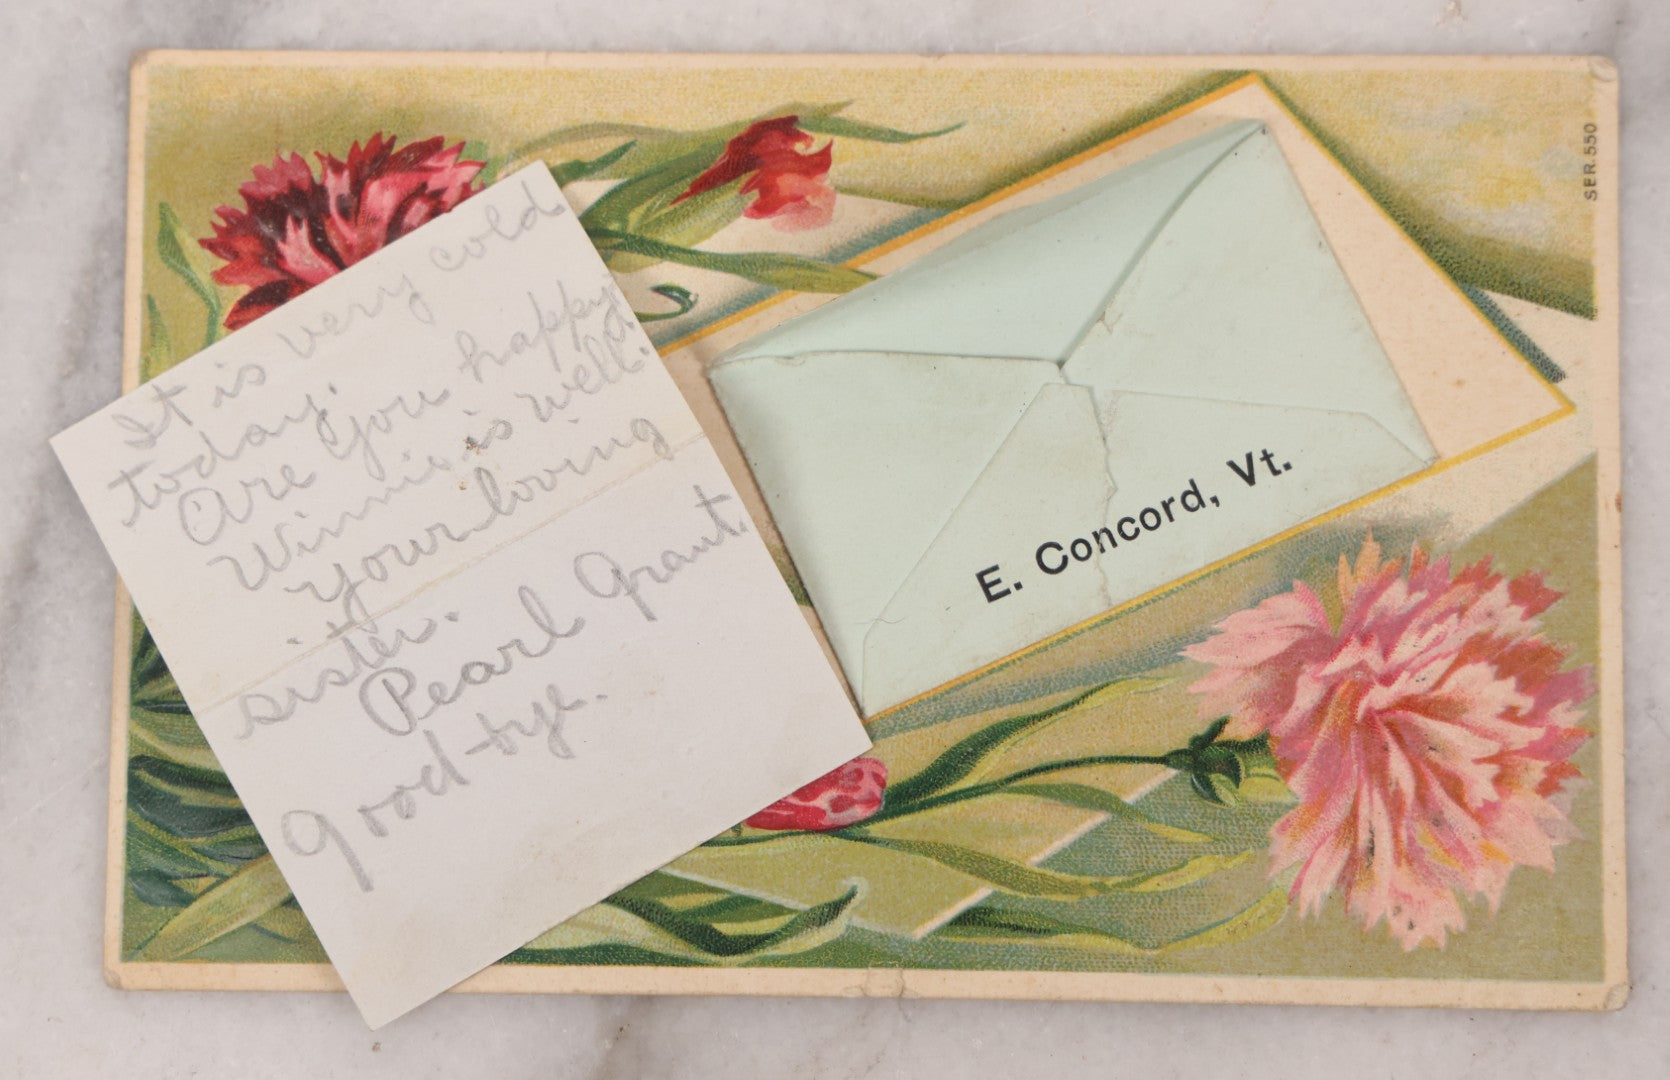 It is very cold
today.
Are you happy.
Winnie is well.
Your loving
sister.
Pearl Grant.
Good-bye.
E. Concord, Vt.
SER. 550